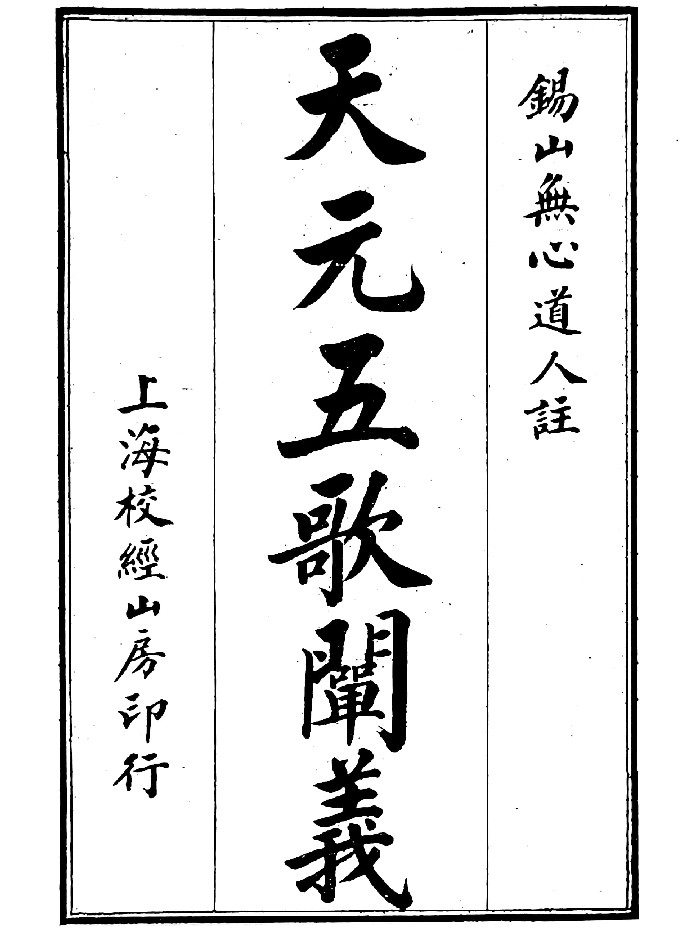 錫山無心道人註
天元五歌闡義
上海校經山房印行